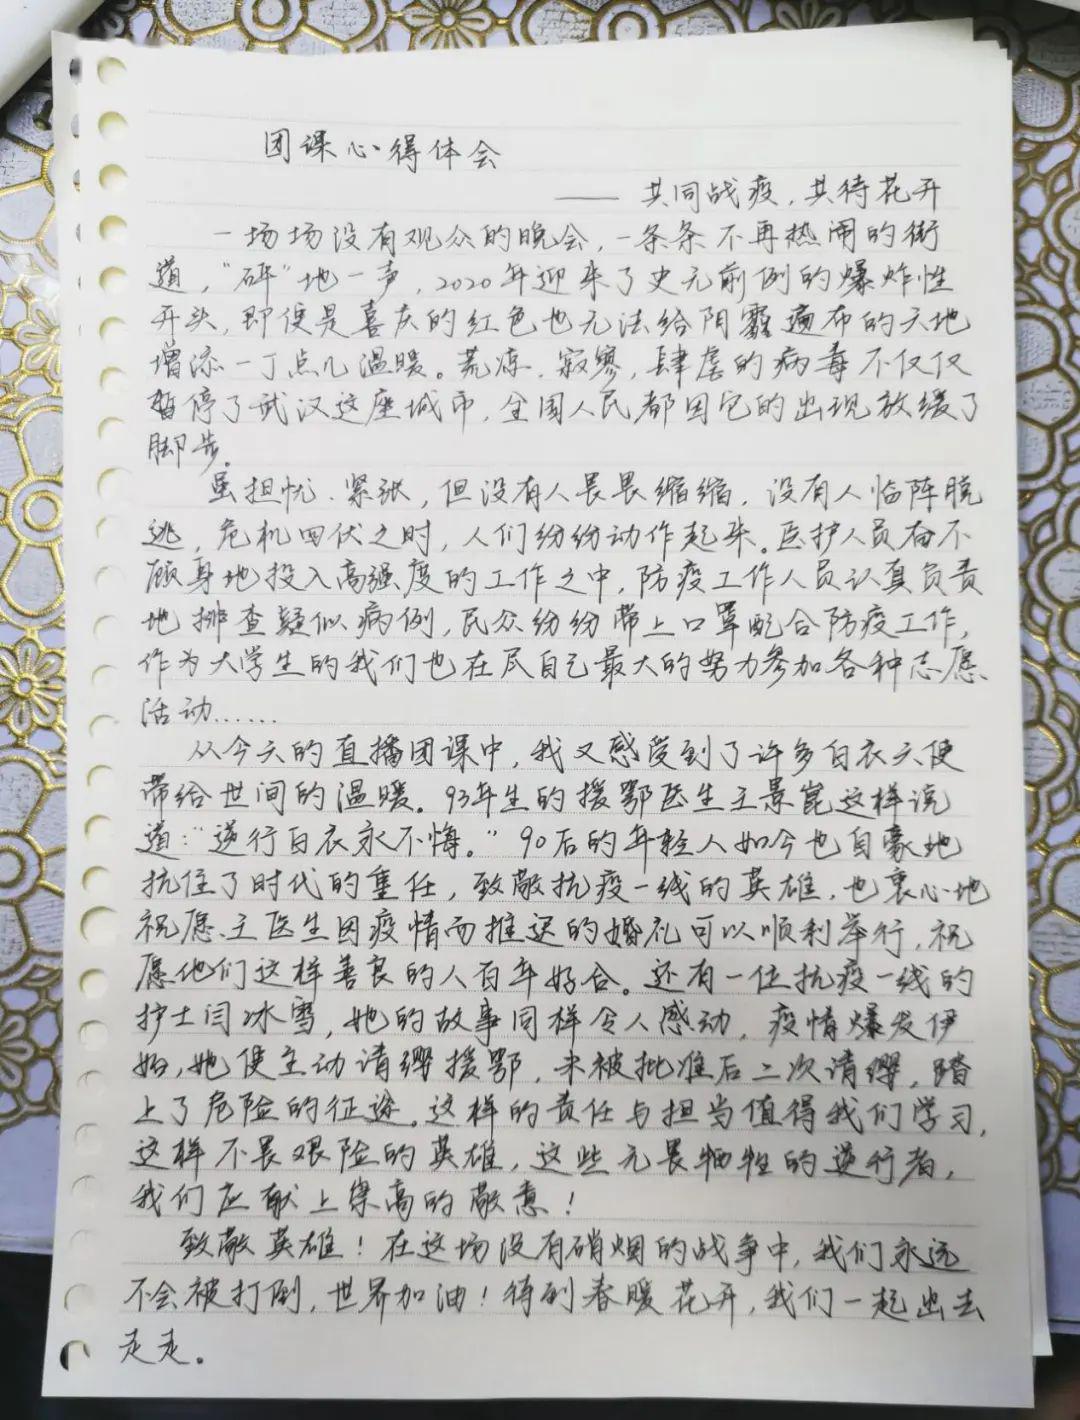 团课心得体会
—— 共同战疫，共待花开
一场场没有观众的晚会，一条条不再热闹的街
道，"砰"地一声，2020年迎来了史无前例的爆炸性
开头，即便是喜庆的红色也无法给阴霾遍布的天地
增添一丁点儿温暖。荒凉、寂寥，肆虐的病毒不仅仅
暂停了武汉这座城市，全国人民都因它的出现放缓了
脚步。
虽担忧、紧张，但没有人畏畏缩缩，没有人临阵脱
逃，危机四伏之时，人们纷纷动作起来。医护人员奋不
顾身地投入高强度的工作之中，防疫工作人员认真负责
地排查疑似病例，民众纷纷带上口罩配合防疫工作，
作为大学生的我们也在尽自己最大的努力参加各种志愿
活动……
从今天的直播团课中，我又感受到了许多白衣天使
带给世间的温暖。93年生的援鄂医生王景崑这样说
道："逆行白衣永不悔。"90后的年轻人如今也自豪地
抗住了时代的重任，致敬抗疫一线的英雄，也衷心地
祝愿王医生因疫情而推迟的婚礼可以顺利举行，祝
愿他们这样善良的人百年好合。还有一位抗疫一线的
护士闫冰雪，她的故事同样令人感动，疫情爆发伊
始，她便主动请缨援鄂，未被批准后二次请缨，踏
上了危险的征途。这样的责任与担当值得我们学习，
这样不畏艰险的英雄，这些无畏牺牲的逆行者，
我们应献上崇高的敬意！
致敬英雄！在这场没有硝烟的战争中，我们永远
不会被打倒，世界加油！待到春暖花开，我们一起出去
走走。